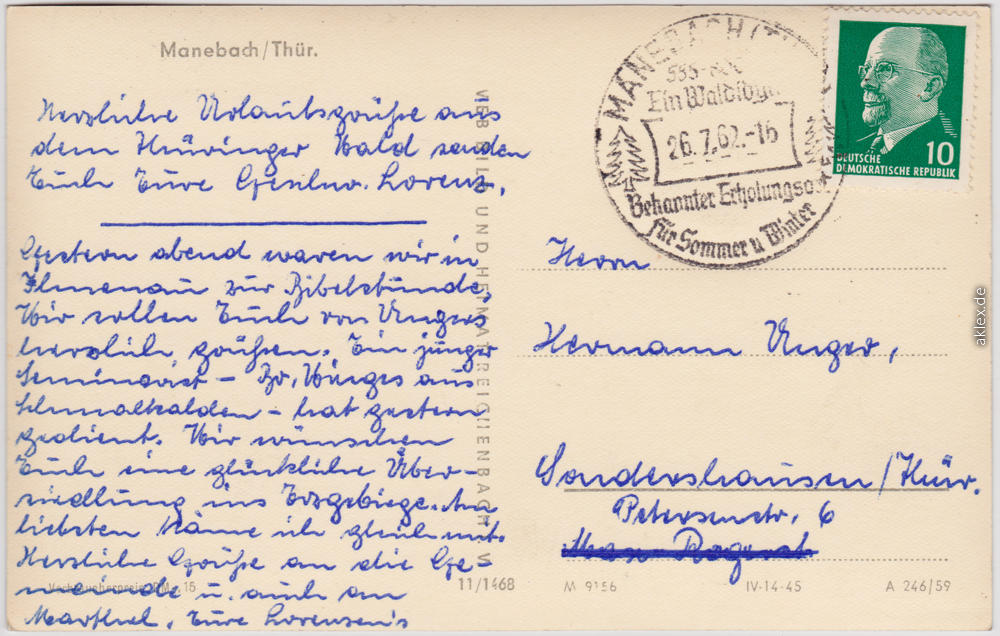 Manebach/Thür.
Herzliche Urlaubsgrüße aus
dem Thüringer Wald senden
Euch Eure Geschw. Lorenz.
Gestern abend waren wir in
Ilmenau zur Bibelstunde.
Wir sollen Euch von Ungers
herzlich grüßen. Ein junger
Seminarist – Br. Winges aus
Schmalkalden – hat gestern
gedient. Wir wünschen
Euch eine glückliche Über-
siedlung ins Erzgebirge. Am
liebsten käme ich gleich mit.
Herzliche Grüße an die Ge-
meinde u. auch an
Marthel. Eure Lorenzen's
Verbraucherpreis DM -.15
VEB BILD UND HEIMAT REICHENBACH i. V.
11/1468
MANEBACH (TH
Ein Waldidyll
26.7.62.-16
Bekannter Erholungsort
für Sommer u Winter
DEUTSCHE
DEMOKRATISCHE REPUBLIK
10
Herrn
Hermann Unger,
Sondershausen/Thür.
Petersenstr. 6
M 9156
IV-14-45
A 246/59
aklex.de